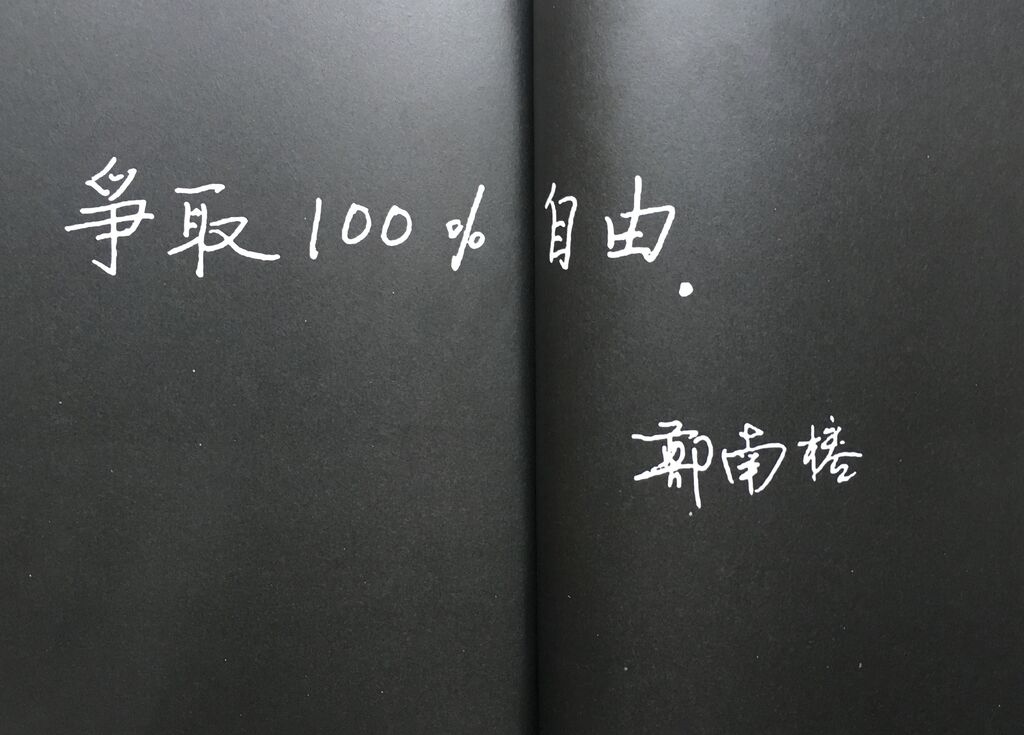 爭取100%自由.
鄭南榕